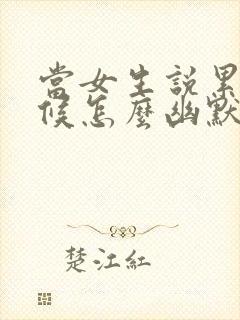 當女生説累
候怎麼幽默
楚江紅